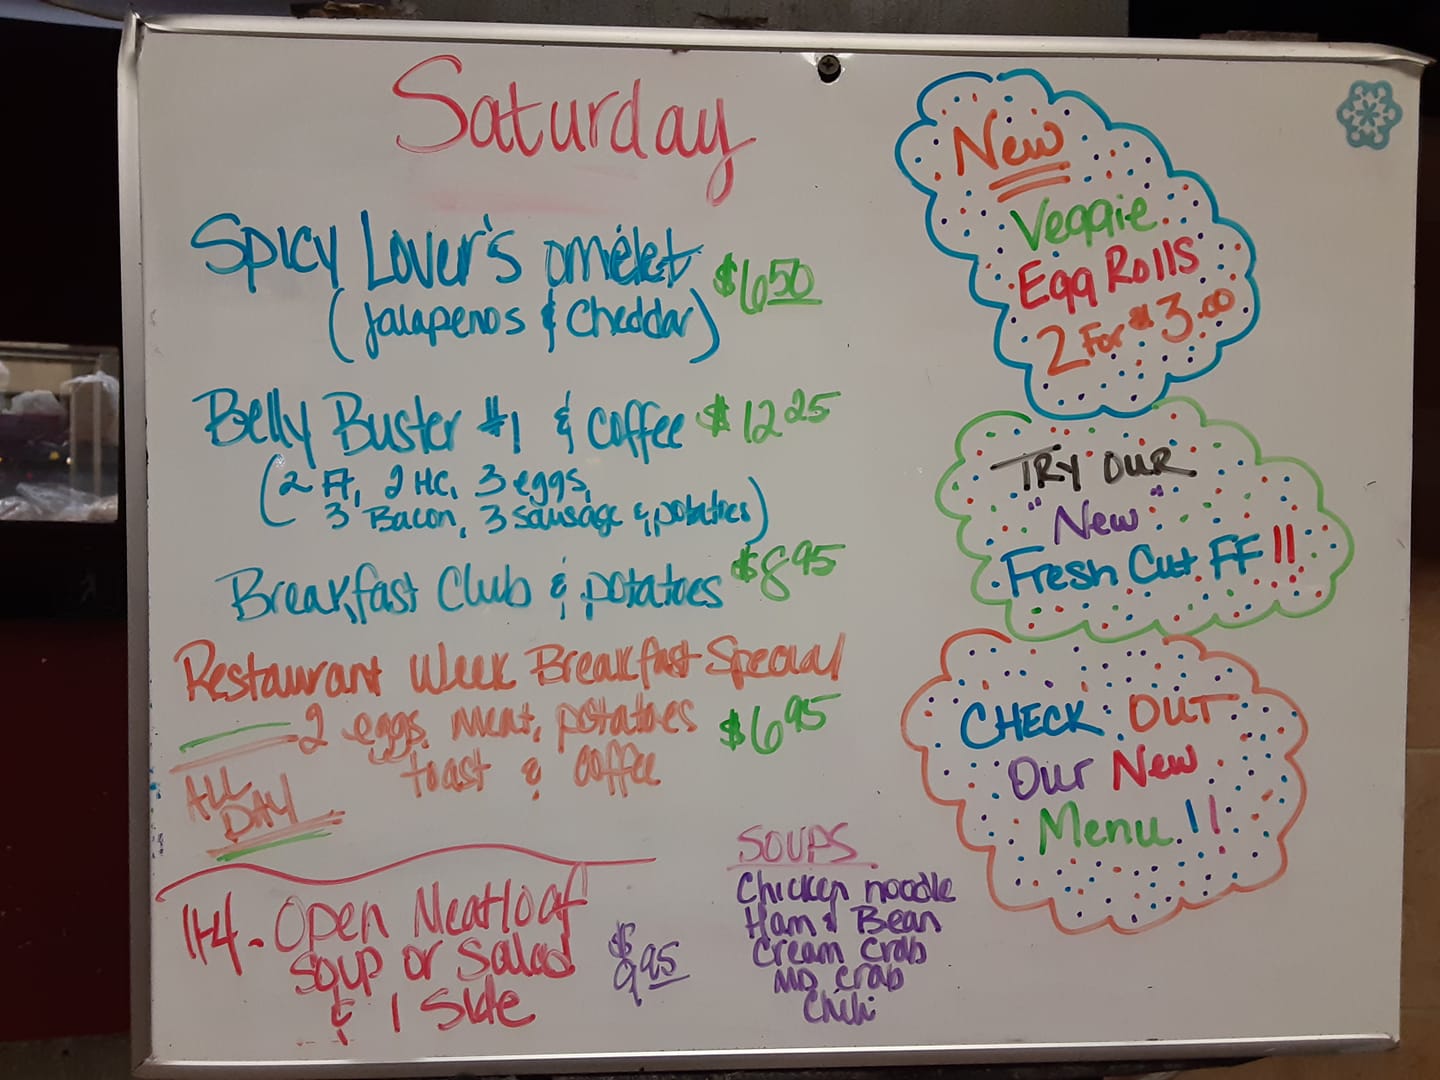 Saturday
Spicy Lover's omelet $6.50
(Jalapenos & Cheddar)
Belly Buster #1 & coffee $12.25
(2 FT, 2 HC, 3 eggs,
3 Bacon, 3 sausage & potatoes)
Breakfast Club & potatoes $8.95
Restaurant Week Breakfast Special
2 eggs, meat, potatoes $6.95
toast & coffee
ALL
DAY
11-4 - Open Meatloaf
soup or salad $9.95
& 1 side
SOUPS
Chicken noodle
Ham & Bean
Cream Crab
MD Crab
Chili
New
Veggie
Egg Rolls
2 For $3.00
TRY OUR
"New"
Fresh Cut FF!!
CHECK OUT
Our New
Menu!!